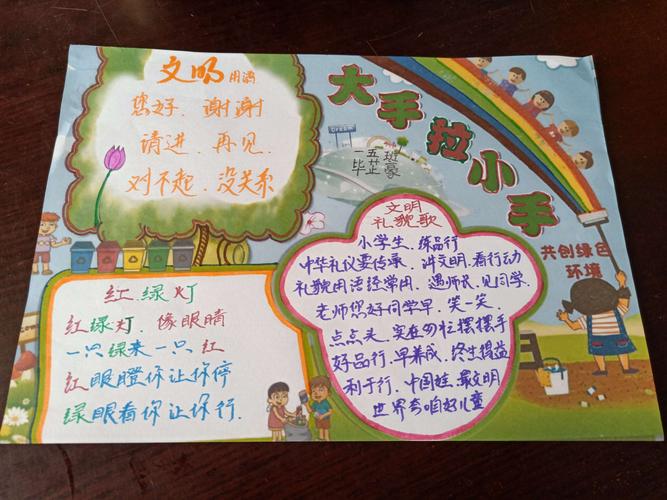 文明用语
您好．谢谢
请进．再见．
对不起．没关系
大手拉小手
一五班
毕芷豪
共创绿色
环境
红．绿灯
红绿灯．像眼睛
一只绿来一只红
红眼瞪你让你停
绿眼看你让你行．
文明
礼貌歌
小学生．练品行
中华礼仪要传承．讲文明．看行动
礼貌用语经常用．遇师长．见同学．
老师您好同学早．笑一笑．
点点头．实在勿忘摆摆手
好品行．早养成．终生得益
利于行．中国娃．最文明
世界夸咱好儿童